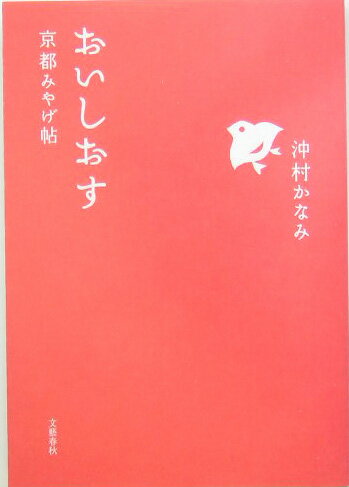 沖村かなみ
おいしおす
京都みやげ帖
文藝春秋